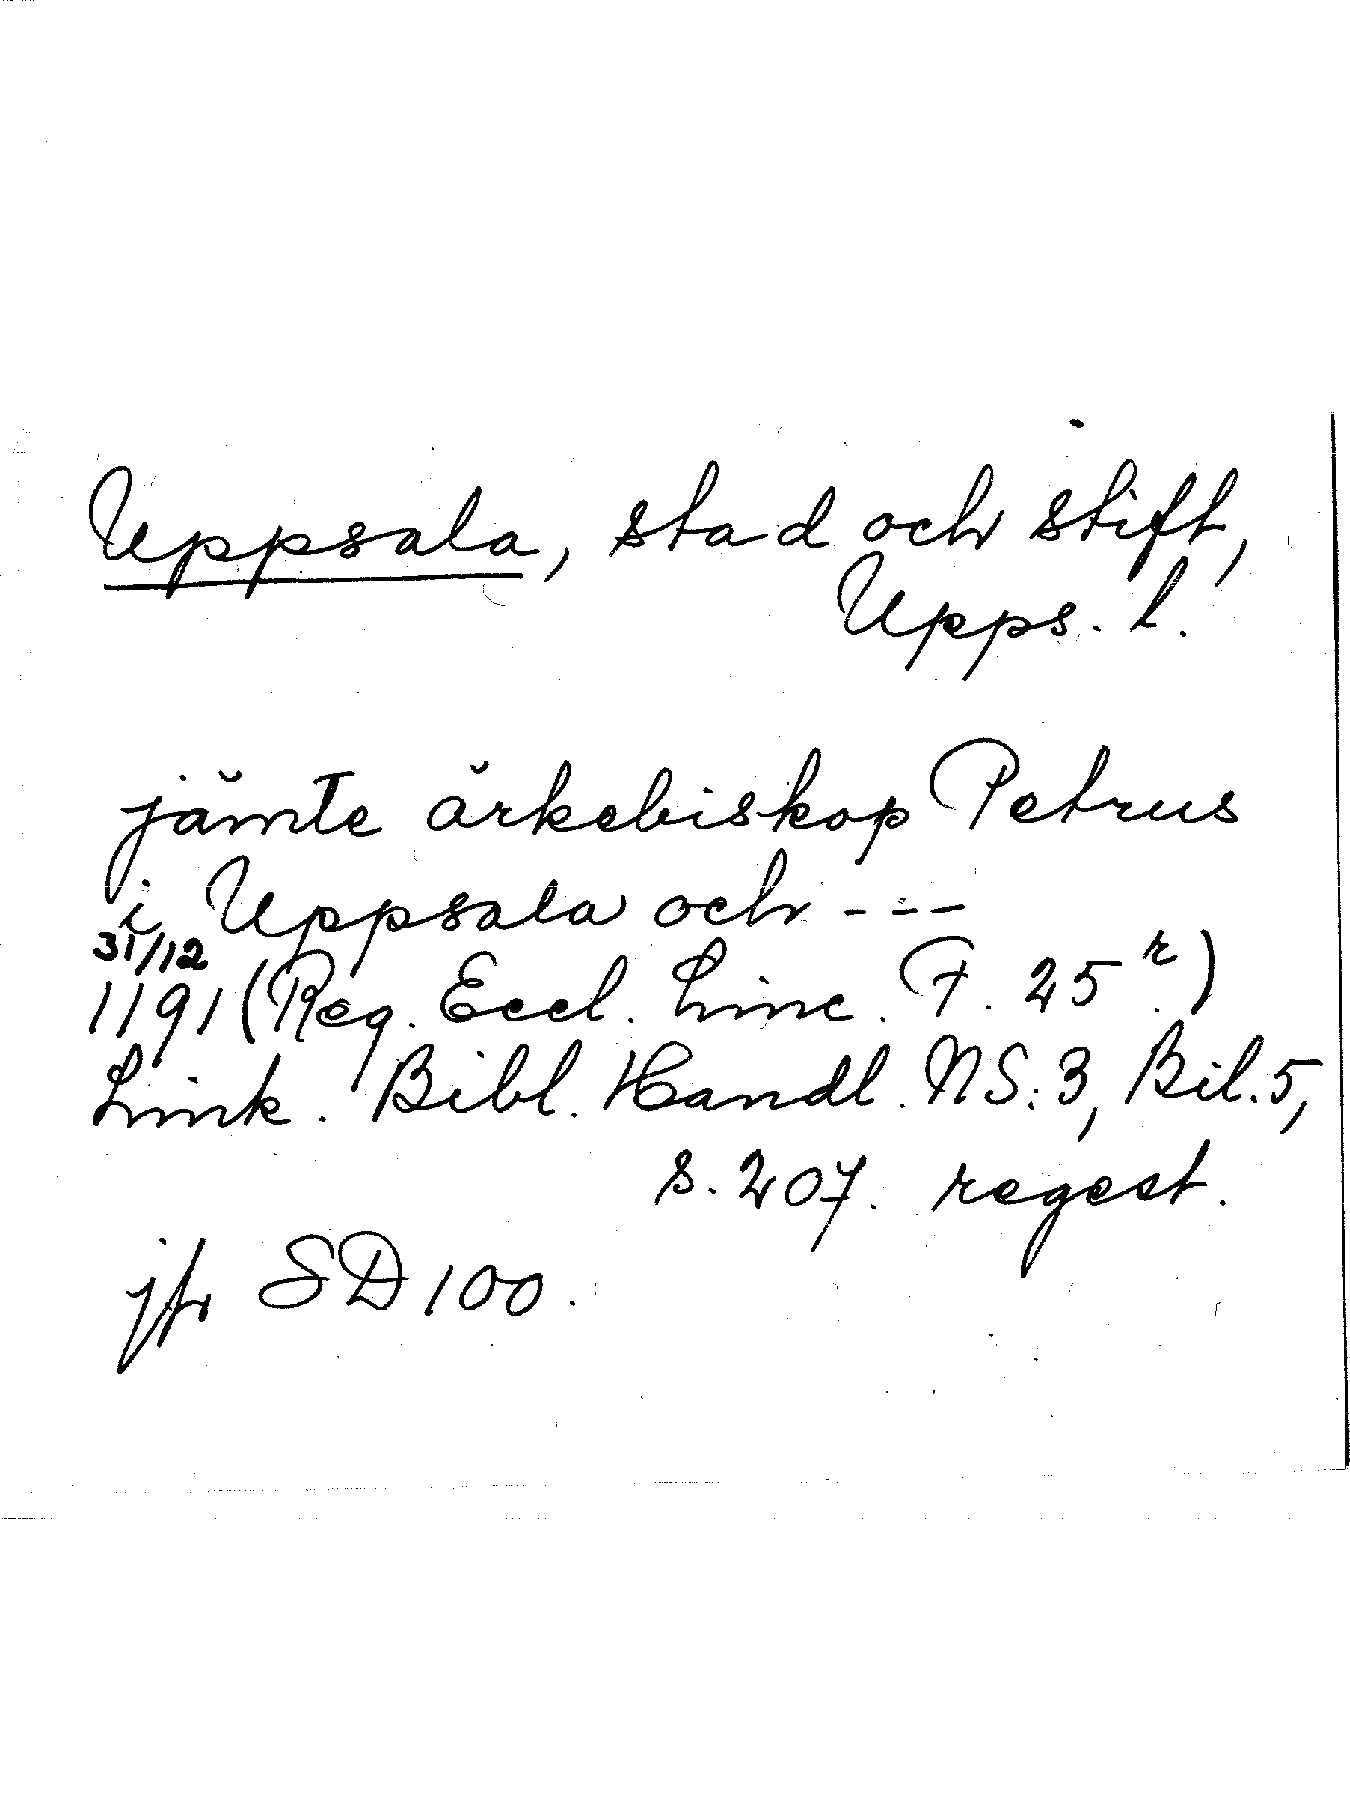 Uppsala, stad och stift,
Upps. l.
jämte ärkebiskop Petrus
i Uppsala och ---
31/12
1191 (Reg. Eccl. Linc. F. 25 r)
Link. Bibl. Handl. NS: 3, Bil. 5,
s. 207. regest.
jfr SD 100.